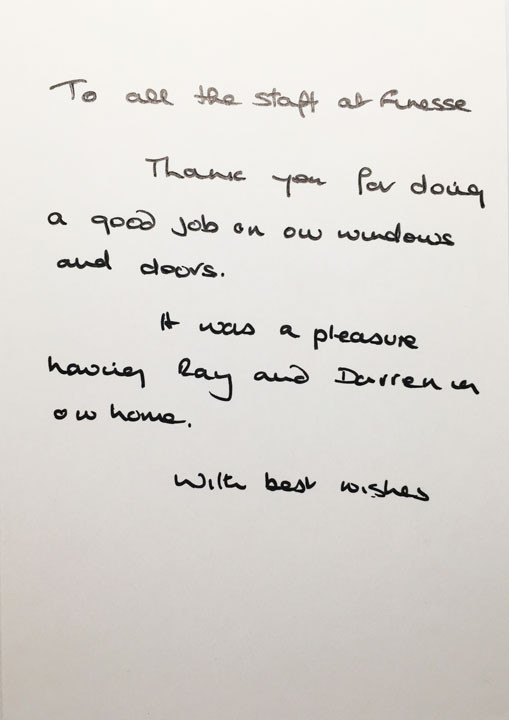 To all the staff at Finesse
Thank you for doing
a good job on our windows
and doors.
It was a pleasure
having Ray and Darren in
our home.
With best wishes